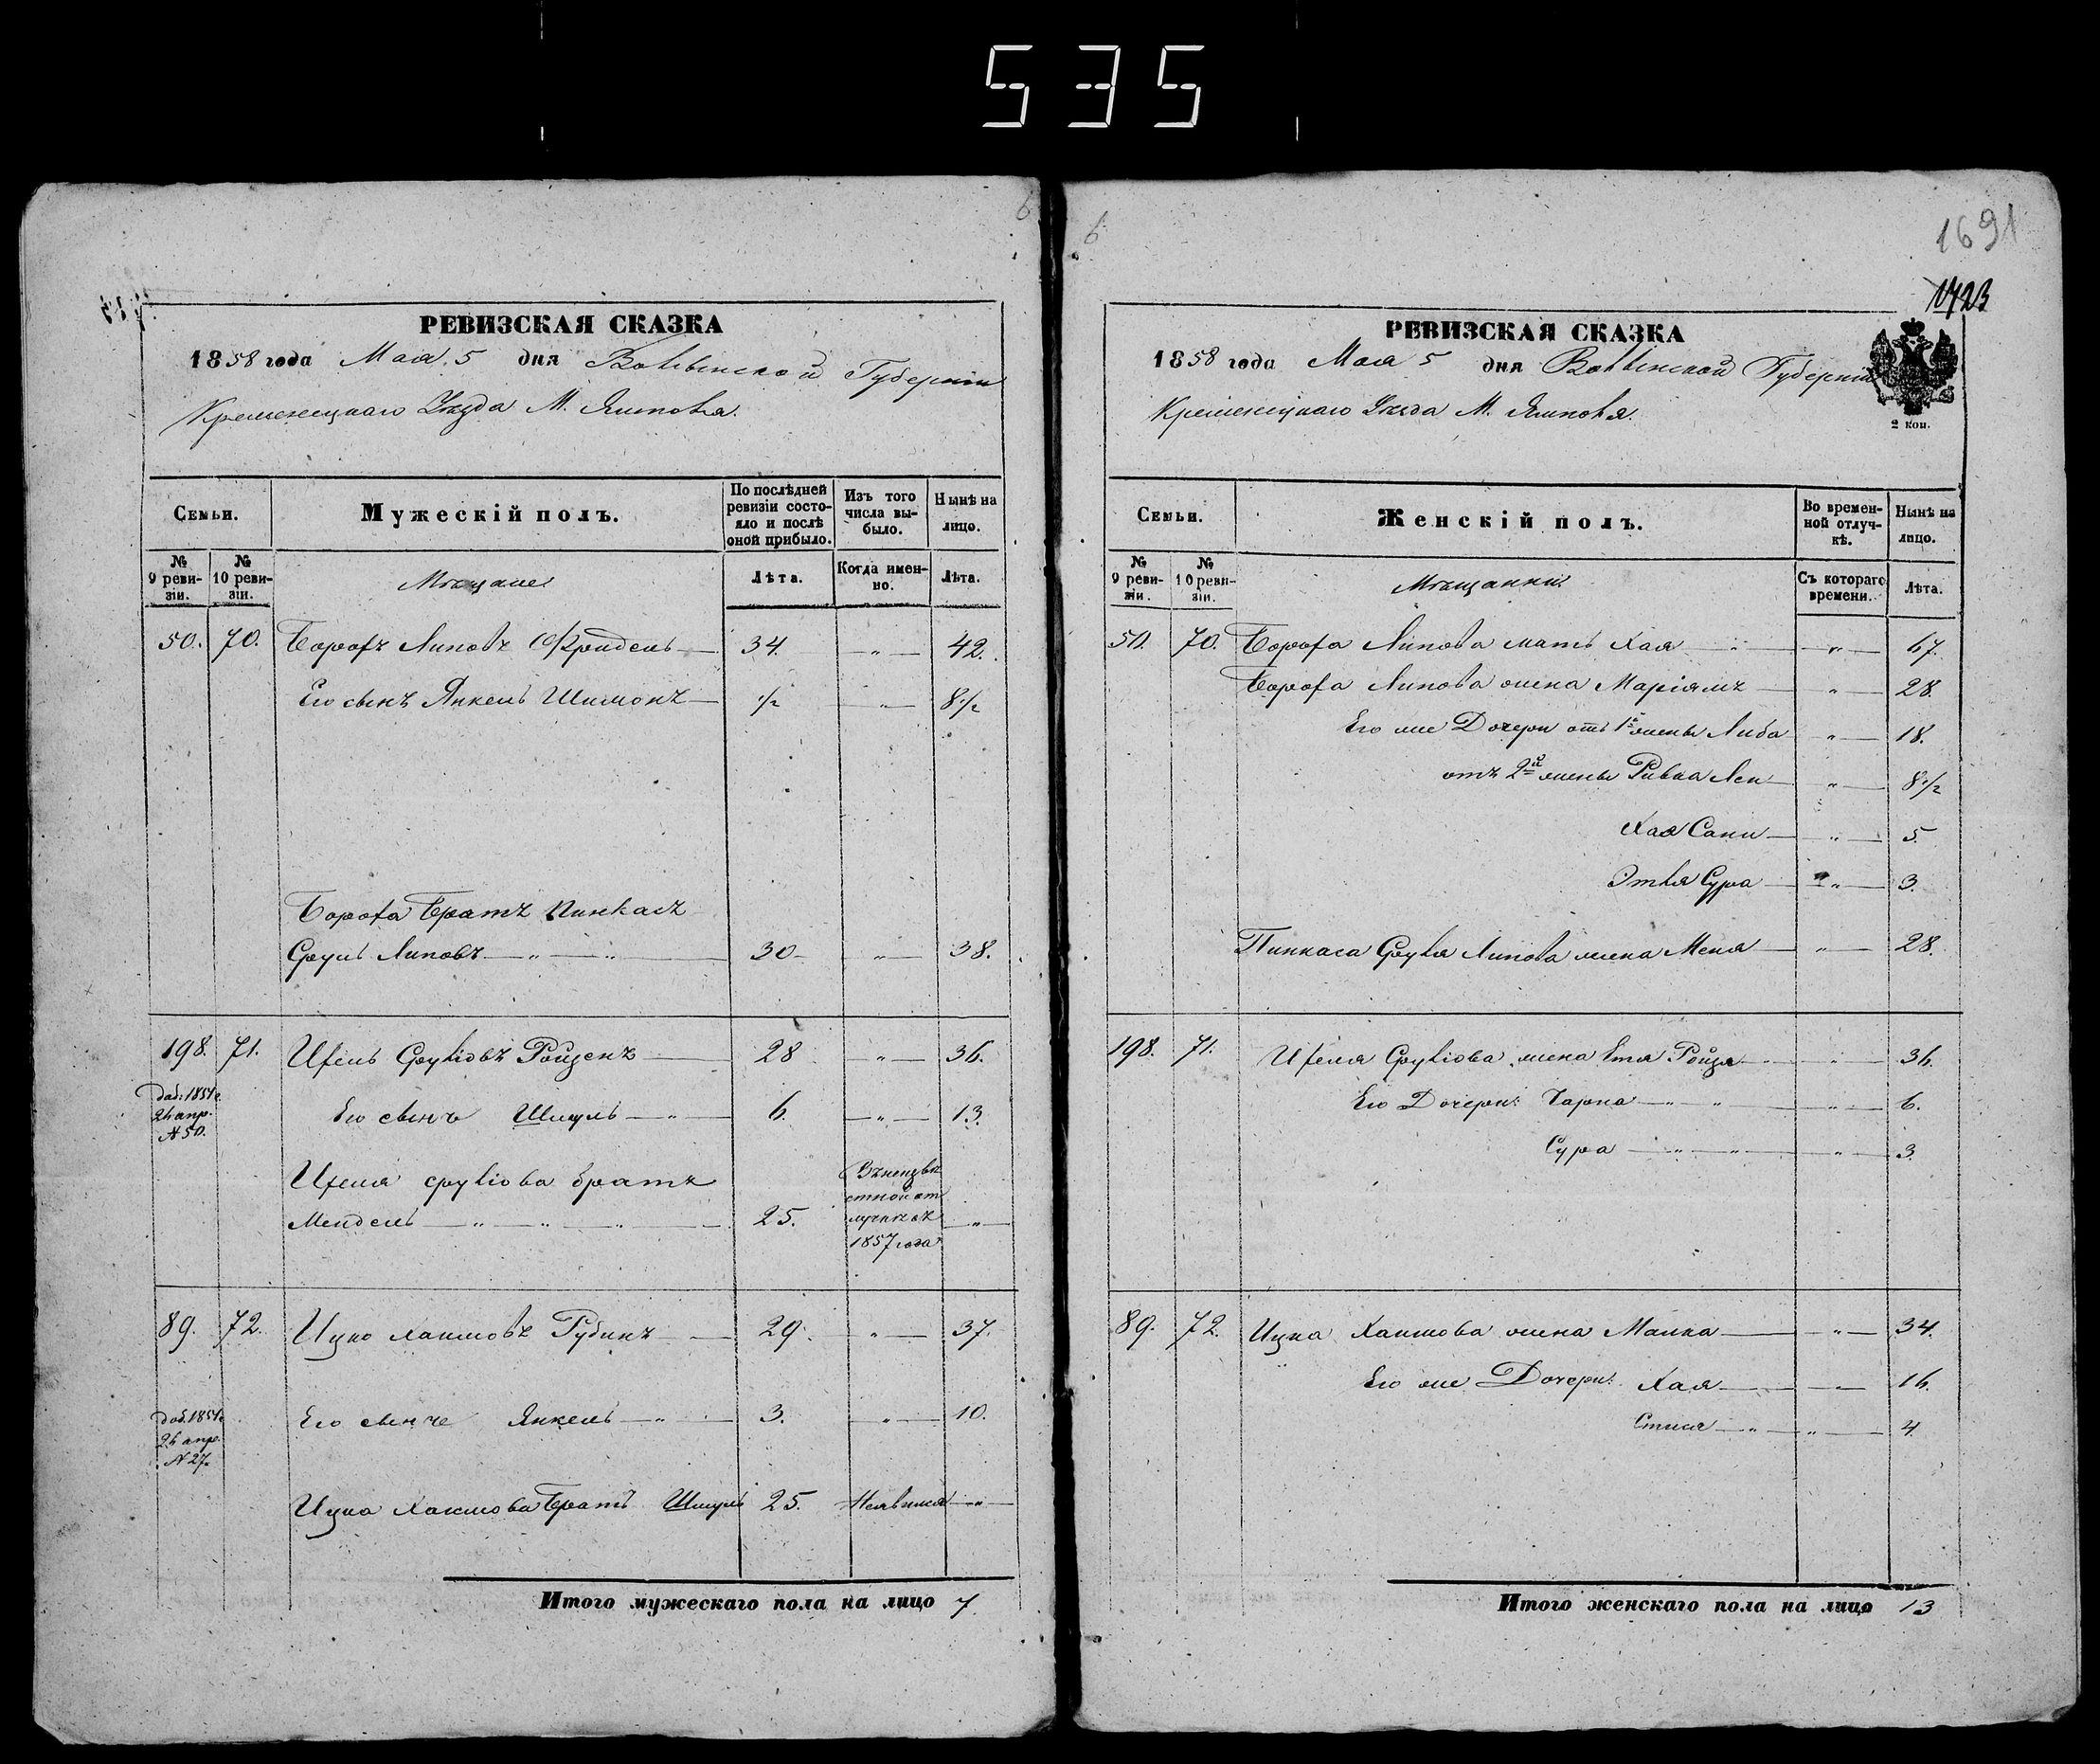 535
6
РЕВИЗСКАЯ СКАЗКА
1858 года Мая 5 дня Волынской Губерніи
Кременецкаго Уезда М. Ямполя.
Семьи.
Мужескій полъ.
По послѣдней ревизіи состояло и послѣ оной прибыло.
Изъ того числа выбыло.
Нынѣ на лицо.
№ 9 ревизіи.
№ 10 ревизіи.
Мѣщане
Лѣта.
Когда именно.
Лѣта.
50. 70. Борохъ Липовъ Фридель 34. — „ — 42.
Его сынъ Янкель Шимонъ ½ — „ — 8½
Бороха Братъ Пинкасъ
Сруль Липовъ — „ — „ — 30 — „ — 38.
198. 71. Ихель Срулiовъ Ройзенъ 28 — „ — 36.
доб: 1851 г. 26 апр. № 50.
Его сынъ Шмуль — „ — 6. — „ — 13.
Ихеля Срулiова братъ
Мендель — „ — „ — „ — 25.
Въ неизвѣстной отлучкѣ съ 1857 года — „ —
89. 72. Ицко Хаимовъ Рубинъ — 29. „ — 37.
доб. 1851 г. 26 апр. № 27.
Его сынъ Янкель — „ — 3. „ — 10.
Ицка Хаимова Братъ Шмуль 25. — „ —
Итого мужескаго пола на лицо 7.
6
1691
1723
РЕВИЗСКАЯ СКАЗКА
1858 года Мая 5 дня Волынской Губерніи
Кременецкаго Уезда М. Ямполя.
2 коп.
Семьи.
Женскій полъ.
Во временной отлучкѣ.
Нынѣ на лицо.
№ 9 ревизіи.
№ 10 ревизіи.
Мѣщанки
Съ котораго времени.
Лѣта.
50. 70. Бороха Липова мать Хая — „ — 67.
Бороха Липова жена Маріямъ — „ — 28.
Его же Дочери отъ 1й жены Либа „ — 18.
отъ 2й жены Ривка Леи — „ — 8½
Хая — „ — 5.
Этля Сура — „ — 3.
Пинкаса Сруля Липова жена Меня — „ — 28.
198. 71. Ихеля Срулiова жена Етя Ройзя — „ — 36.
Его Дочери: Чарна — „ — „ — 6.
Сура — „ — „ — „ — 3.
89. 72. Ицка Хаимова жена Малка — „ — 34.
Его же Дочери: Хая — „ — 16.
— „ — „ — 4.
Итого женскаго пола на лицо 13